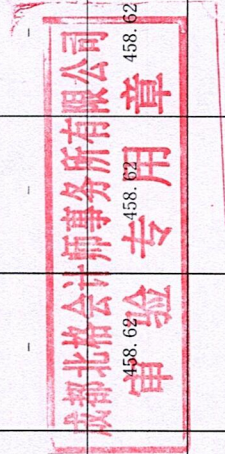 成都北格会计师事务所有限公司
审验专用章
- 458.62
- 458.62
- 458.62